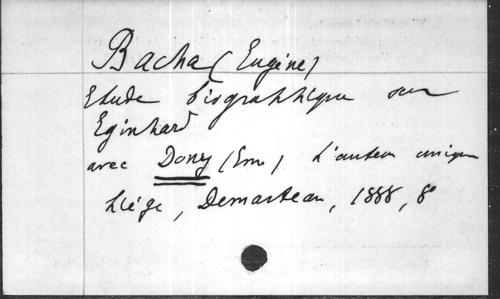 Bacha (Eugène)
Etude biographique sur
Eginhard
avec Dony (Em) L'auteur unique
Liége, Demarteau, 1888, 8°